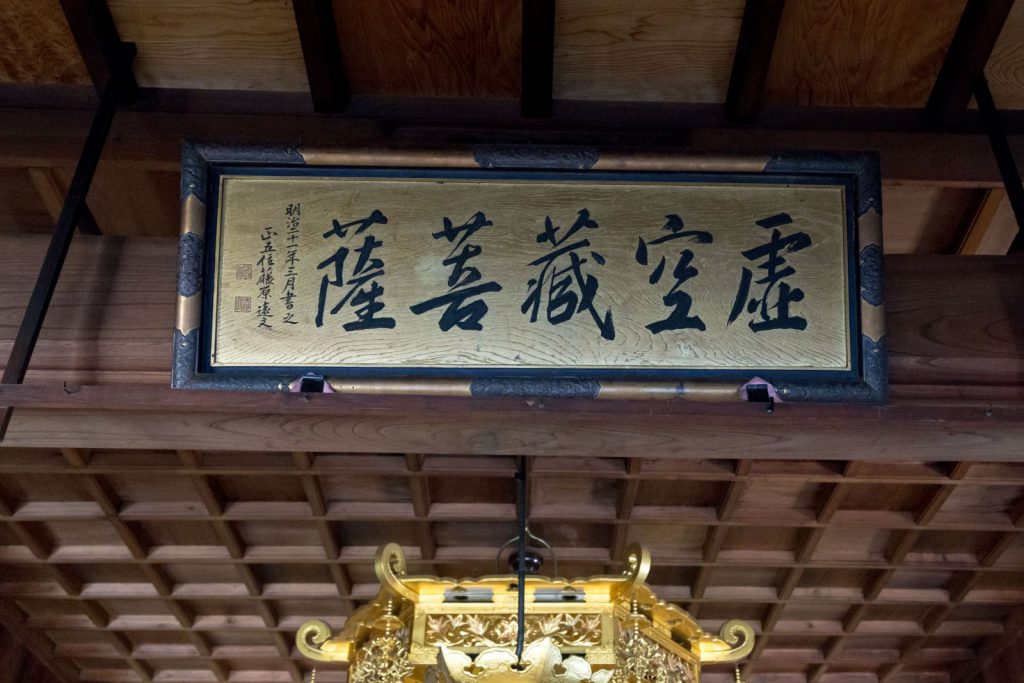 虚空藏菩薩
明治二十一年三月書之
正五位藤原遠文